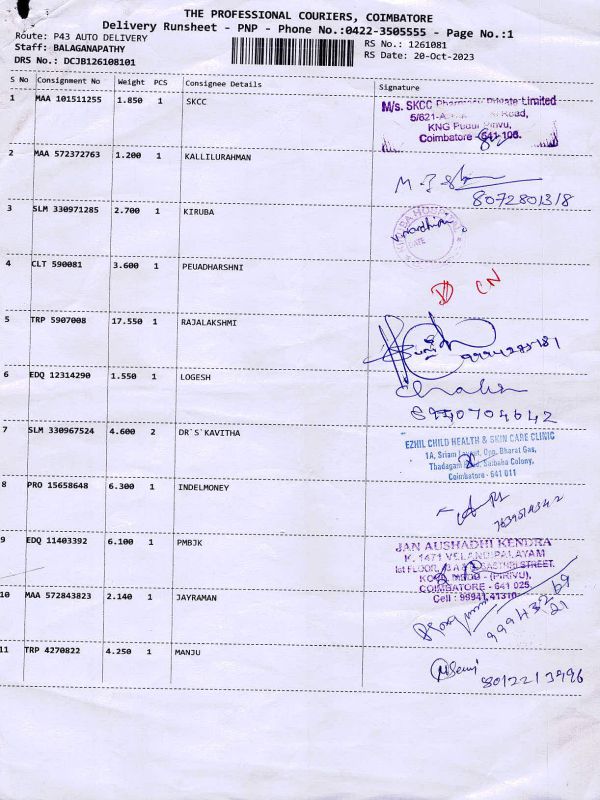 THE PROFESSIONAL COURIERS, COIMBATORE
Delivery Runsheet - PNP - Phone No.:0422-3505555 - Page No.:1
Route: P43 AUTO DELIVERY
RS No.: 1261081
Staff: BALAGANAPATHY
RS Date: 20-Oct-2023
DRS No.: DCJB126108101
S No Consignment No Weight PCS Consignee Details Signature
1 MAA 101511255 1.850 1 SKCC
M/s. SKCC Pharmacy Private Limited
5/621-A Road,
KNG Pudur Pirivu,
Coimbatore - 641 108.
2 MAA 572372763 1.200 1 KALLILURAHMAN
8072801318
3 SLM 330971285 2.700 1 KIRUBA
DATE
4 CLT 590081 3.600 1 PEUADHARSHNI
CN
5 TRP 5907008 17.550 1 RAJALAKSHMI
6 EDQ 12314290 1.550 1 LOGESH
7 SLM 330967524 4.600 2 DR`S`KAVITHA
EZHIL CHILD HEALTH & SKIN CARE CLINIC
1A, Sriam Layout, Opp. Bharat Gas,
Thadagam Road, Saibaba Colony,
Coimbatore - 641 011
8 PRO 15658648 6.300 1 INDELMONEY
9 EDQ 11403392 6.100 1 PMBJK
JAN AUSHADHI KENDRA
K. 1471 VELANDIPALAYAM
Ist FLOOR, STREET.
(PIRIVU),
COIMBATORE - 641 025.
Cell : 99941 41310
10 MAA 572843823 2.140 1 JAYRAMAN
11 TRP 4270822 4.250 1 MANJU
8012213496